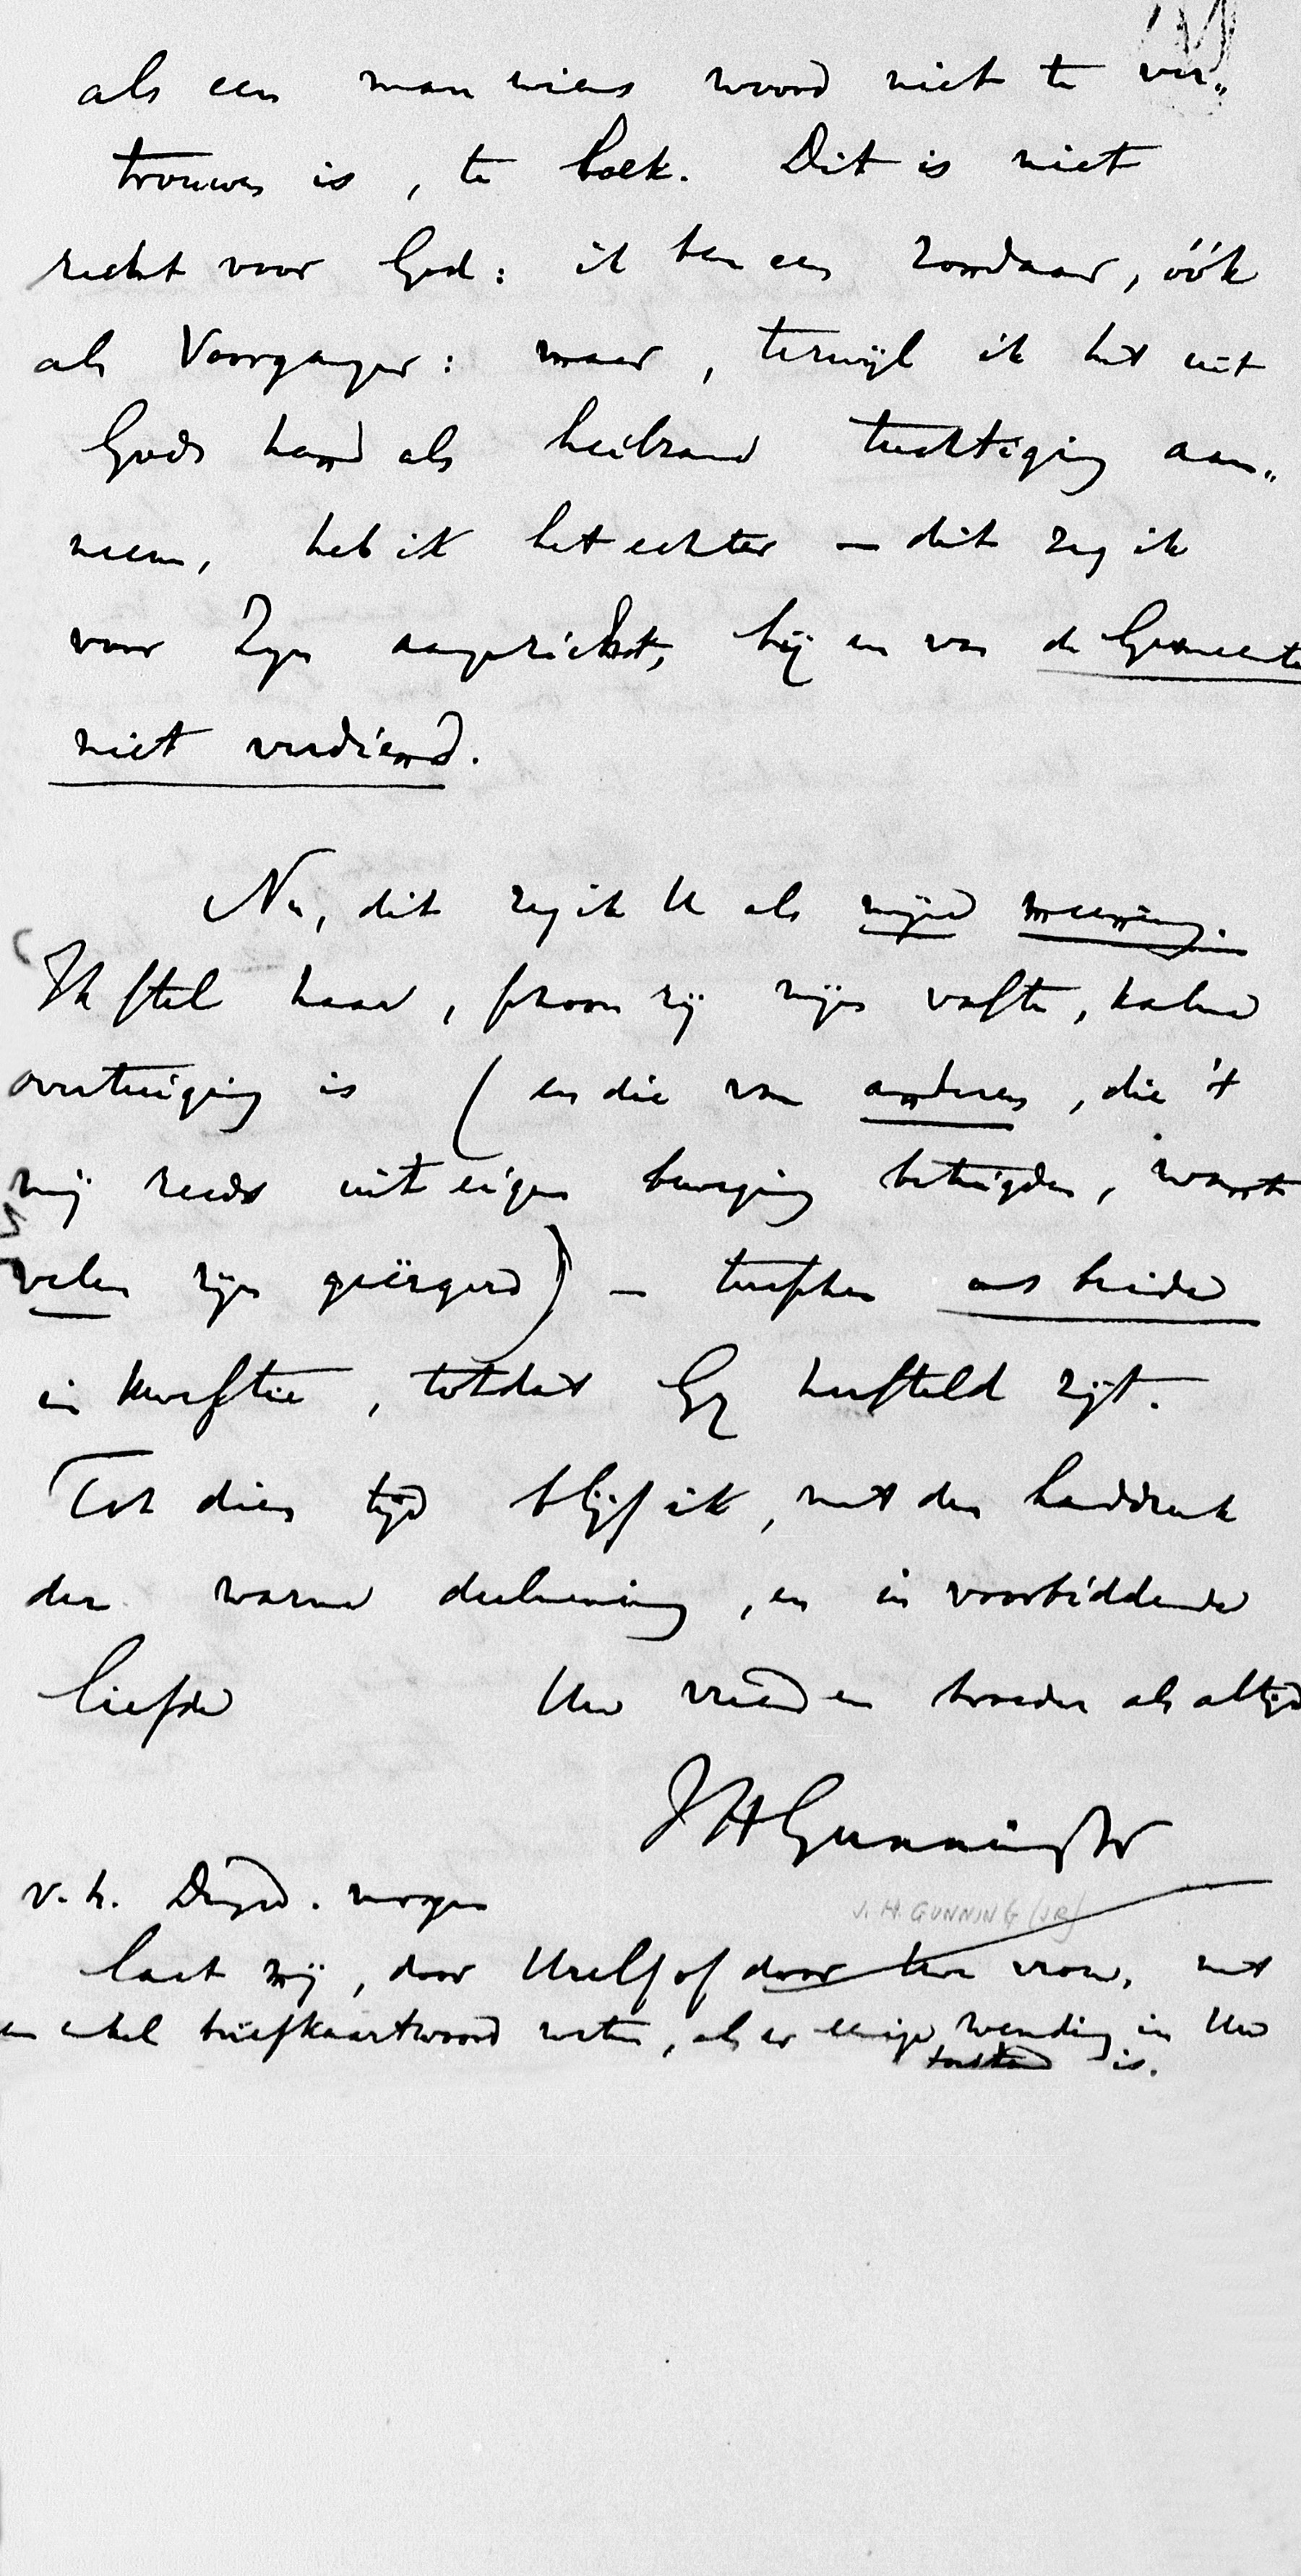 als een man wiens woord niet te ver„
trouwen is, te boek. Dit is niet
recht voor God: ik ben een zondaar, óók
als Voorganger: maar, terwijl ik het uit
Gods hand als heilzame tuchtiging aan„
neem, heb ik het echter — dit zeg ik
voor Zijn aangezicht, bij en van de Gemeente
niet verdiend.
Nu, dit zeg ik U als mijne meening.
Ik stel haar, schoon zij mijn vaste, kalme
overtuiging is (en die van anderen, die 't
mij reeds uit eigen beweging betuigden, want
velen zijn geërgerd) — tusschen ons beide
in kwestie, totdat Gij hersteld zijt.
Tot dien tijd blijf ik, met den handdruk
der warme deelneming, en in voorbiddende
liefde Uw vriend en broeder als altijd
JHGunning Jr
v. h. Dingsd. morgen
J. H. GUNNING (JR)
laat mij, door Uzelf of door Uw vrouw, met
een enkel briefkaartwoord weten, als er eenige wending in Uw
toestand is.